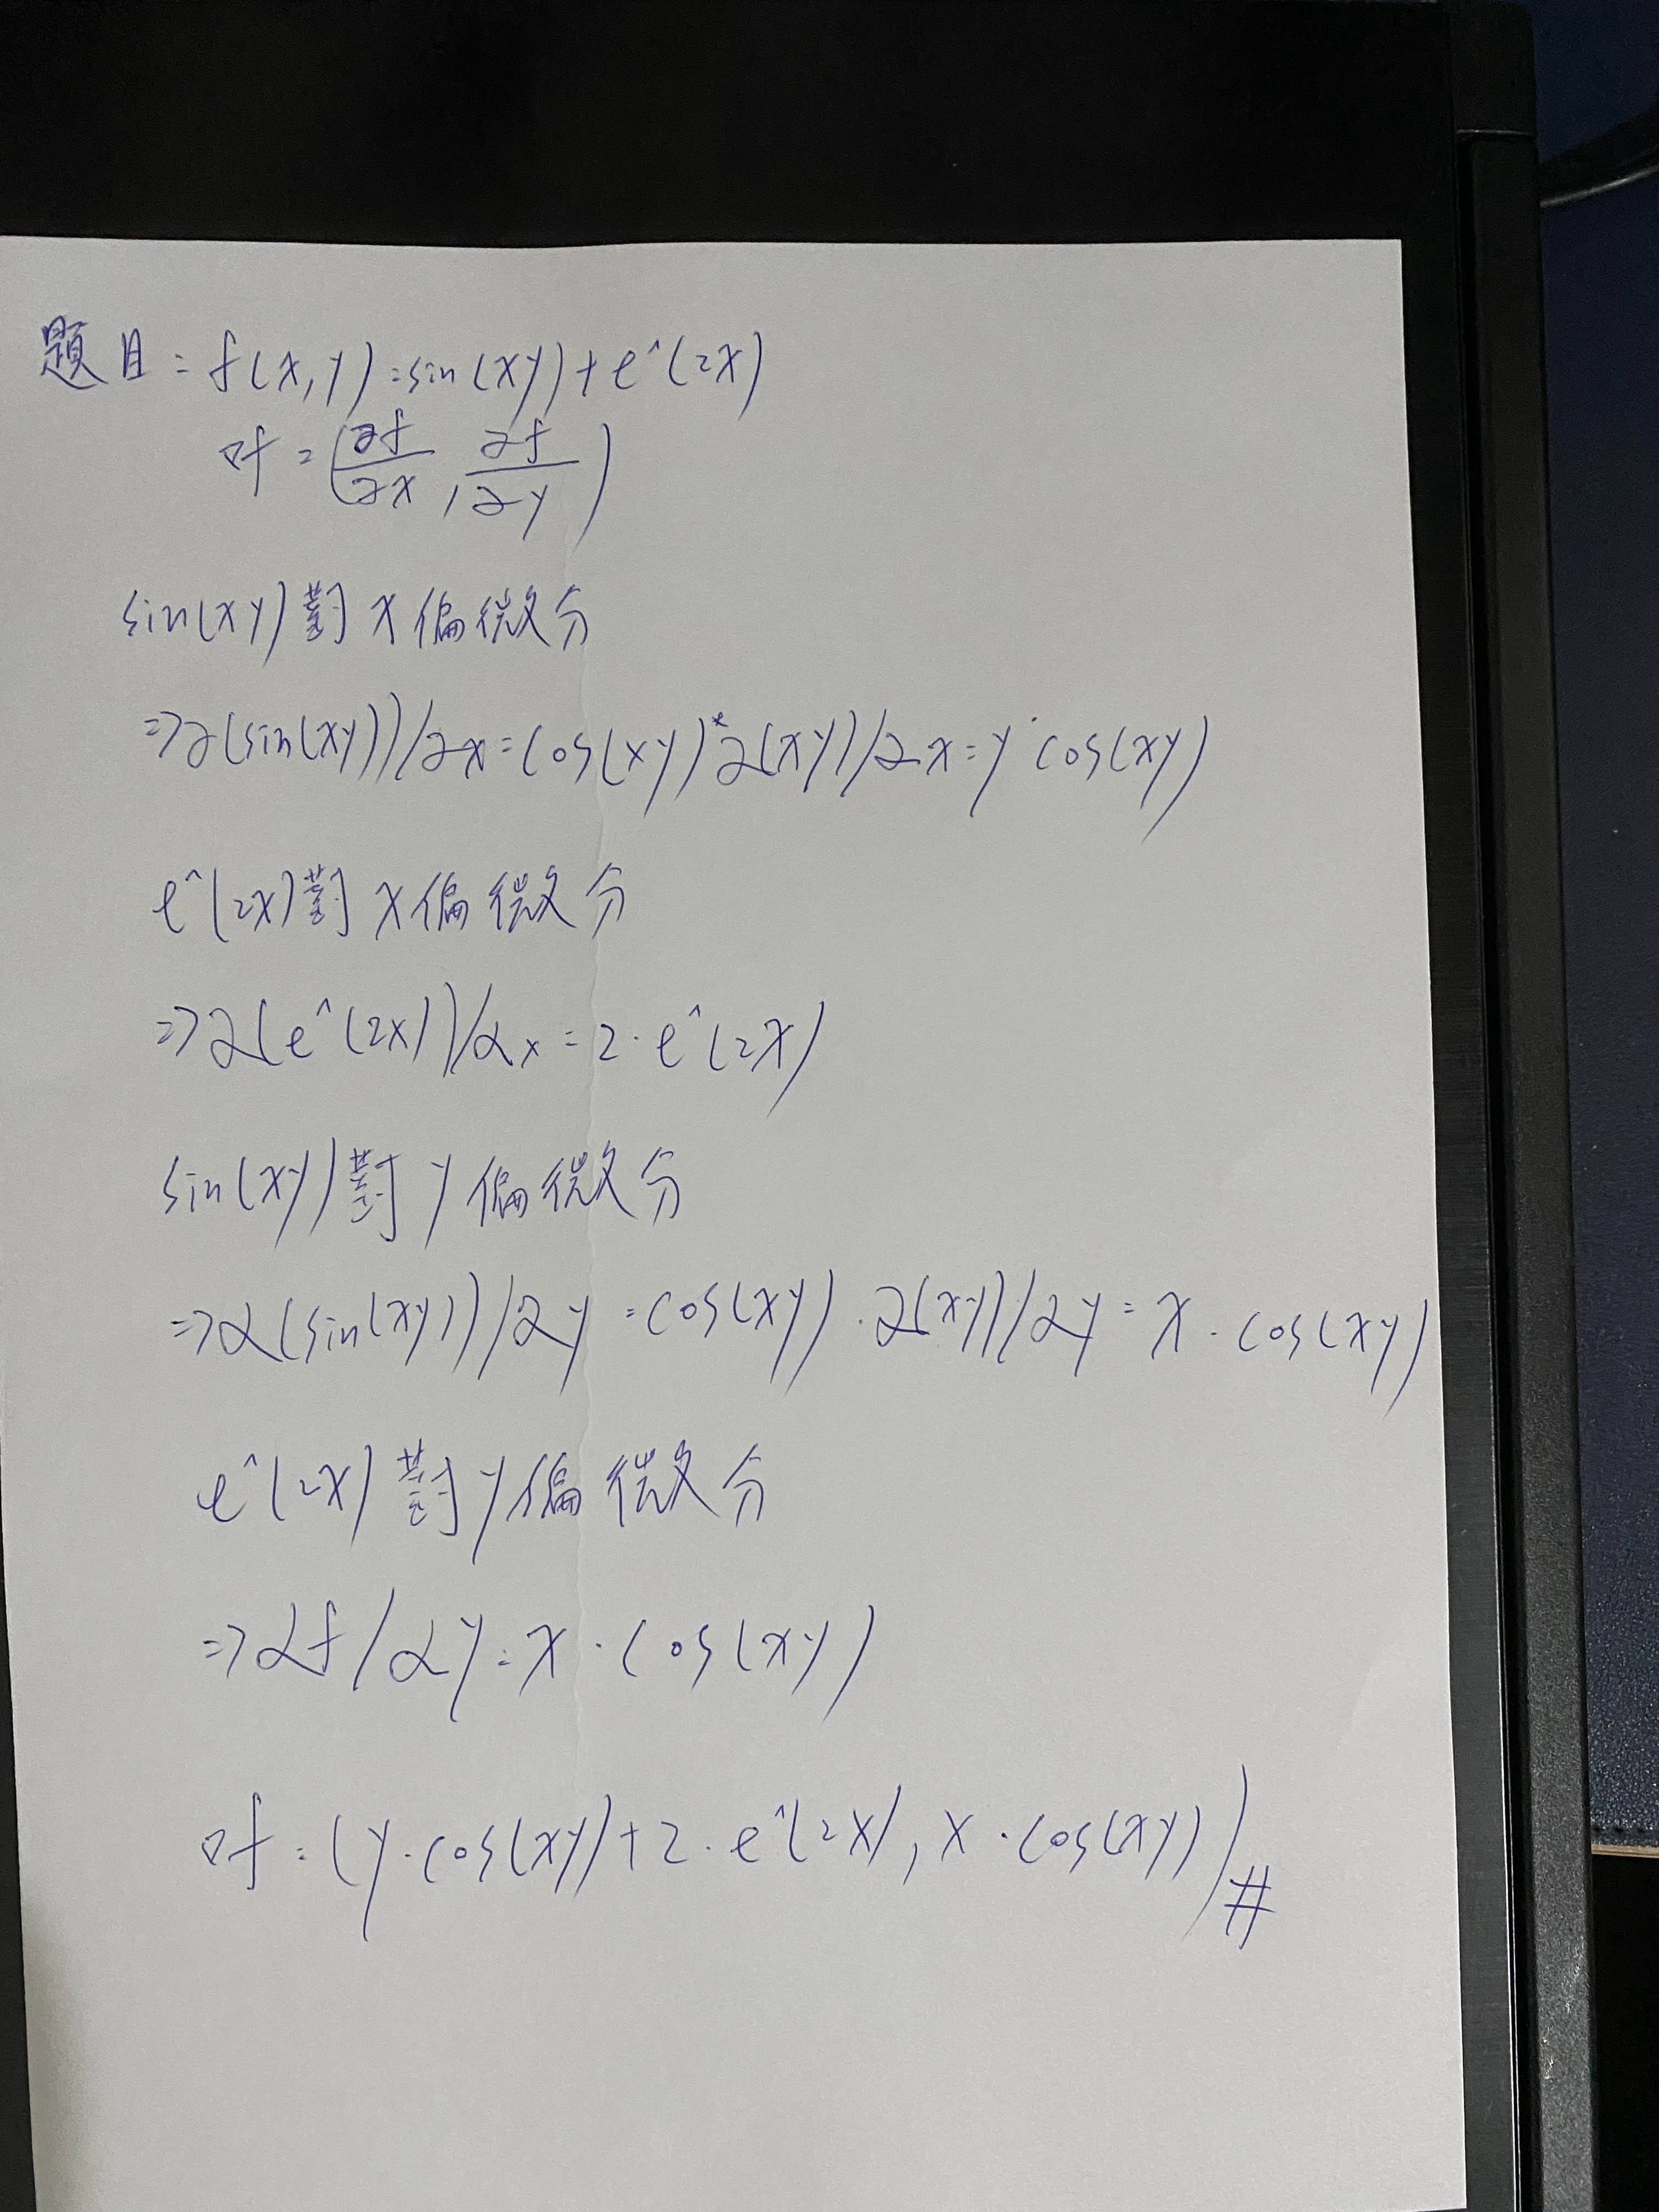 題目:f(x,y)=sin(xy)+e^(2x)
∇f=(∂f/∂x,∂f/∂y)
sin(xy)對x偏微分
=>∂(sin(xy))/∂x=cos(xy)*∂(xy)/∂x=y·cos(xy)
e^(2x)對x偏微分
=>∂(e^(2x))/∂x=2·e^(2x)
sin(xy)對y偏微分
=>∂(sin(xy))/∂y=cos(xy)·∂(xy)/∂y=x·cos(xy)
e^(2x)對y偏微分
=>∂f/∂y=x·cos(xy)
∇f=(y·cos(xy)+2·e^(2x),x·cos(xy))#